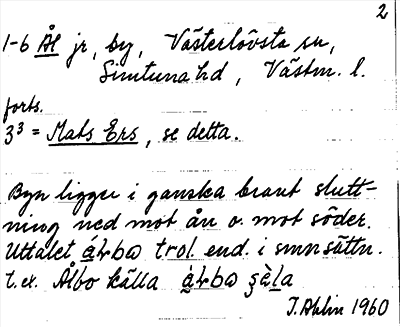 2
1-6 Ål jr, by, Västerlövsta sn,
Simtuna hd, Västm. l.
forts.
3³ = Mats Ers, se detta.
Byn ligger i ganska brant slutt-
ning ned mot ån o. mot söder.
Uttalet trol. end. i smnsättn.
t.ex. Ålbo källa
J. Ahlin 1960